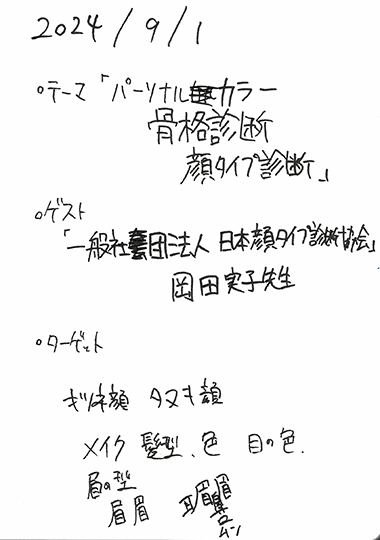 2024/9/1
○テーマ「パーソナルカラー
骨格診断
顔タイプ診断」
○ゲスト
「一般社団法人 日本顔タイプ診断協会」
岡田実子先生
○ターゲット
キツネ顔 タヌキ顔
メイク 髪型、色 目の色.
眉の型
眉眉 眉